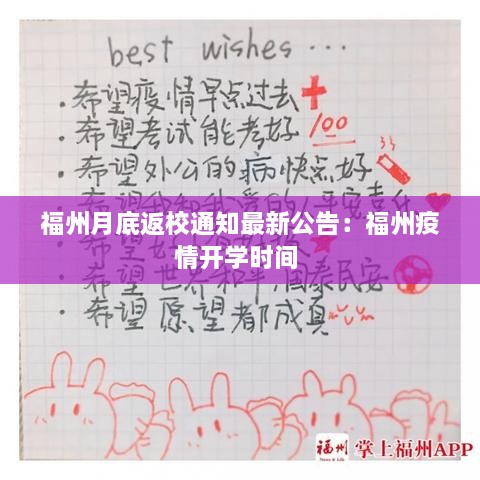 best wishes...
·希望疫情早点过去
·希望考试能考好 100
·希望外公的病快点好
福州月底返校通知最新公告：福州疫
情开学时间
·希望世界和平,国泰民安
·希望愿望都成真
福州 掌上福州APP
News & Life